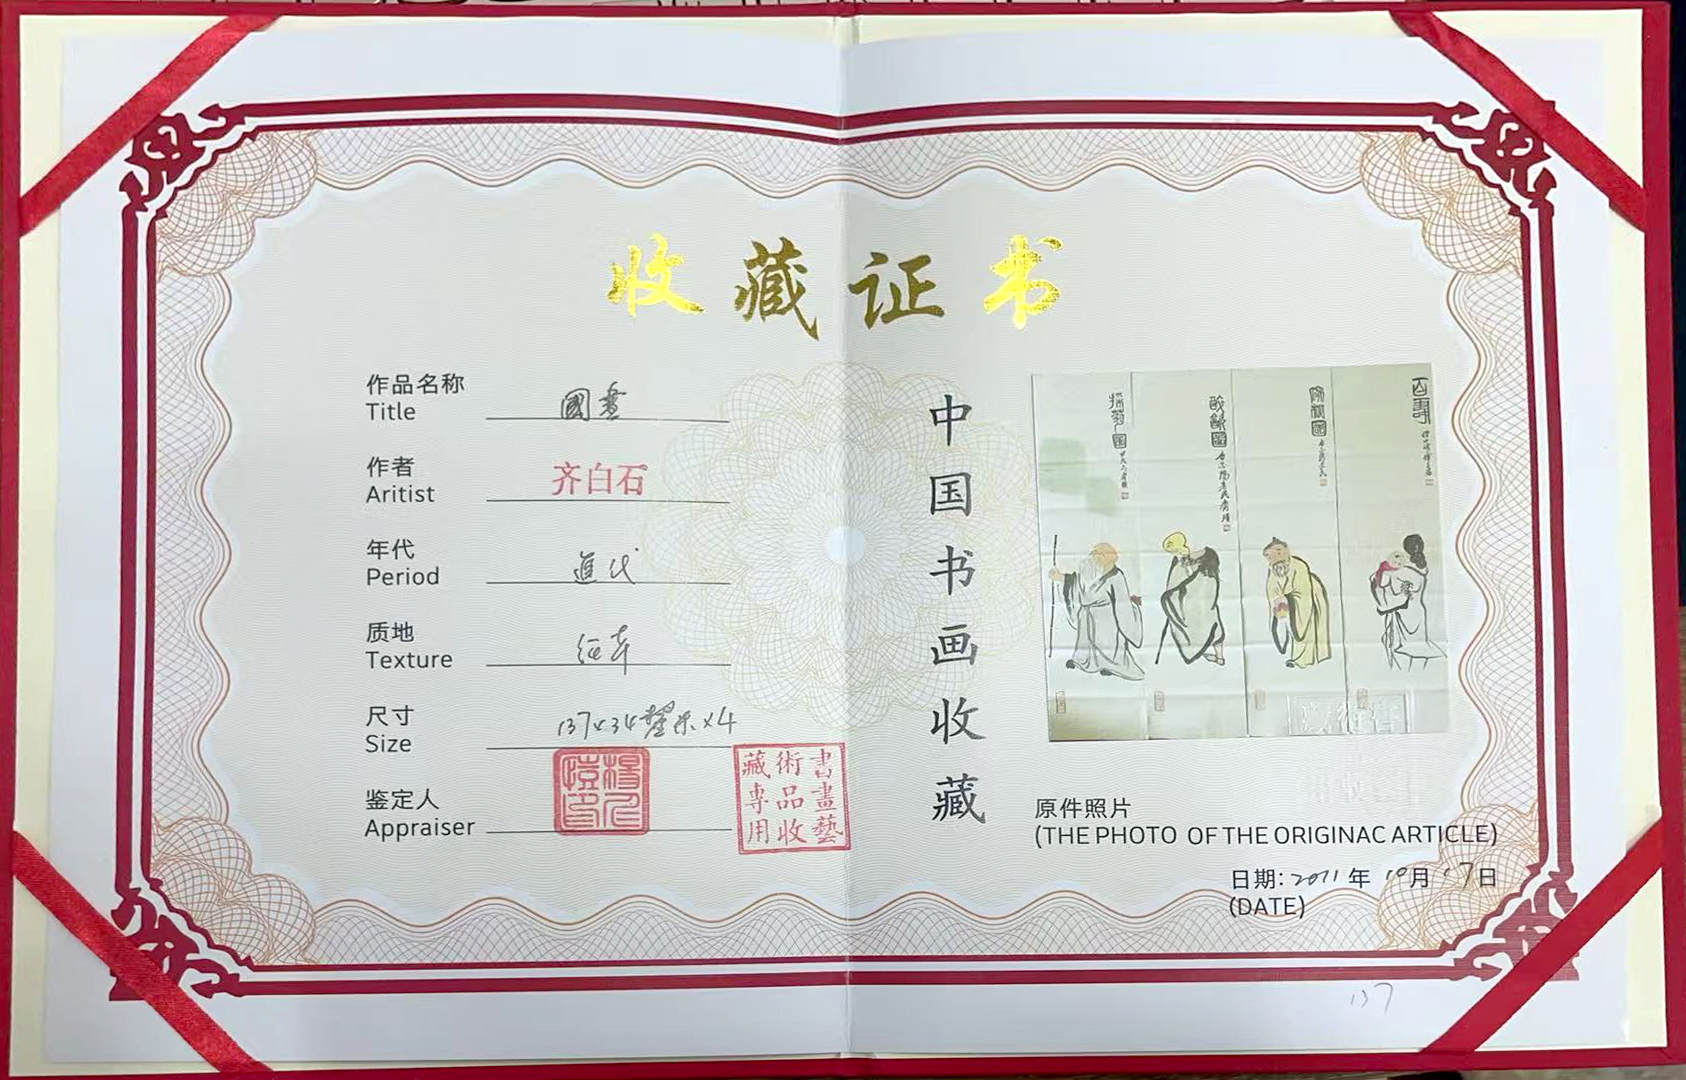 收藏证书
作品名称
Title 國畫
作者
Aritist 齐白石
年代
Period 近代
质地
Texture 纸本
尺寸
Size 137x34釐米x4
鉴定人
Appraiser
書畫藝
術品收
藏専用
中国书画收藏
採菊圖
百壽
原件照片
(THE PHOTO OF THE ORIGINAC ARTICLE)
日期:2011年10月17日
(DATE)
137